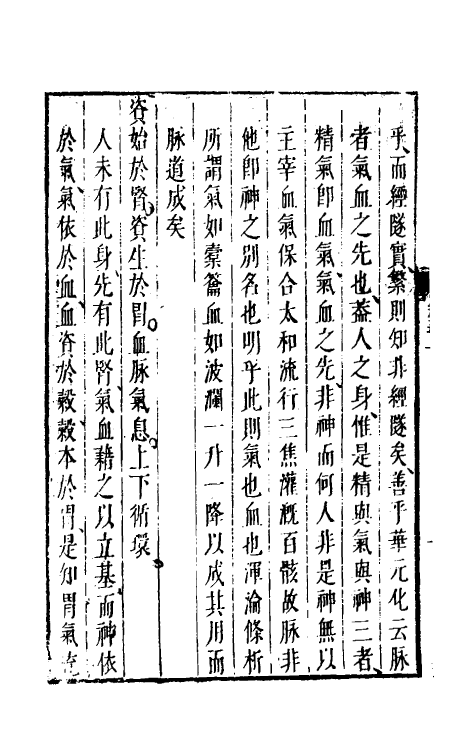 乎而經隧實繁則知非經隧矣善乎華元化云脉
者氣血之先也蓋人之身惟是精與氣與神三者
精氣即血氣氣血之先非神而何人非是神無以
主宰血氣保合太和流行三焦灌溉百骸故脉非
他即神之別名也明乎此則氣也血也渾淪條析
所謂氣如橐籥血如波瀾一升一降以成其用而
脉道成矣
資始於腎資生於胃血脉氣息上下循環
人未有此身先有此腎氣血藉之以立基而神依
於氣氣依於血血資於穀穀本於胃是知胃氣充